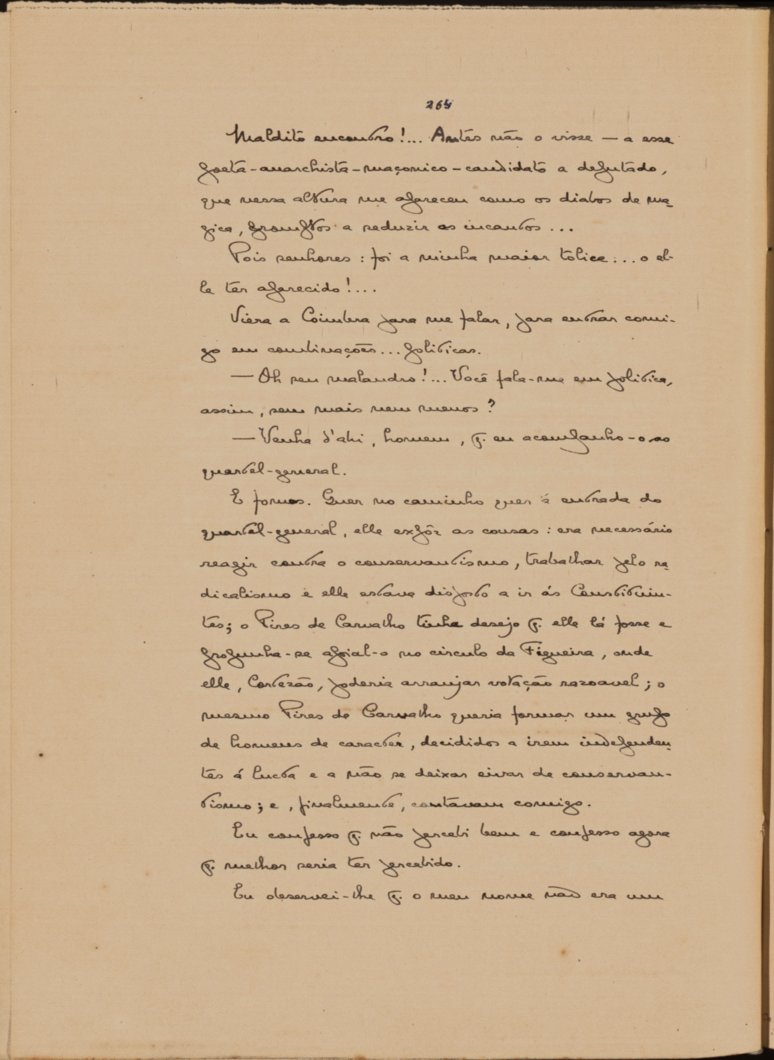 264
Maldito encontro!... Antes não o visse — a esse
poeta-anarchista-maçonico-candidato a deputado,
que nessa altura me apareceu como os diabos de ma-
gica, promptos a seduzir os incautos...
Pois senhores: foi a minha maior tolice... o el-
le ter aparecido!...
Viera a Coimbra para me falar, para entrar comi-
go em combinações... politicas.
— Oh seu malandro!... Você fala-me em politica,
assim, sem mais nem menos?
— Venha d'ahi, homem, q. eu acompanho-o ao
quartel-general.
E fomos. Quer no caminho quer á entrada do
quartel-general, elle expôz as cousas: era necessário
reagir contra o conservantismo, trabalhar pelo ra-
dicalismo e elle estava disposto a ir ás Constituin-
tes; o Pires de Carvalho tinha desejo q. elle lá fosse e
propunha-se apoial-o no circulo da Figueira, onde
elle, Cortezão, poderia arranjar votação razoavel; o
mesmo Pires de Carvalho queria formar um grupo
de homens de caracter, decididos a irem independen-
tes á lucta e a não se deixar eivar de conservan-
tismo; e, finalmente, contavam comigo.
Eu confesso q. não percebi bem e confesso agora
q. melhor seria ter percebido.
Eu observei-lhe q. o meu nome não era um